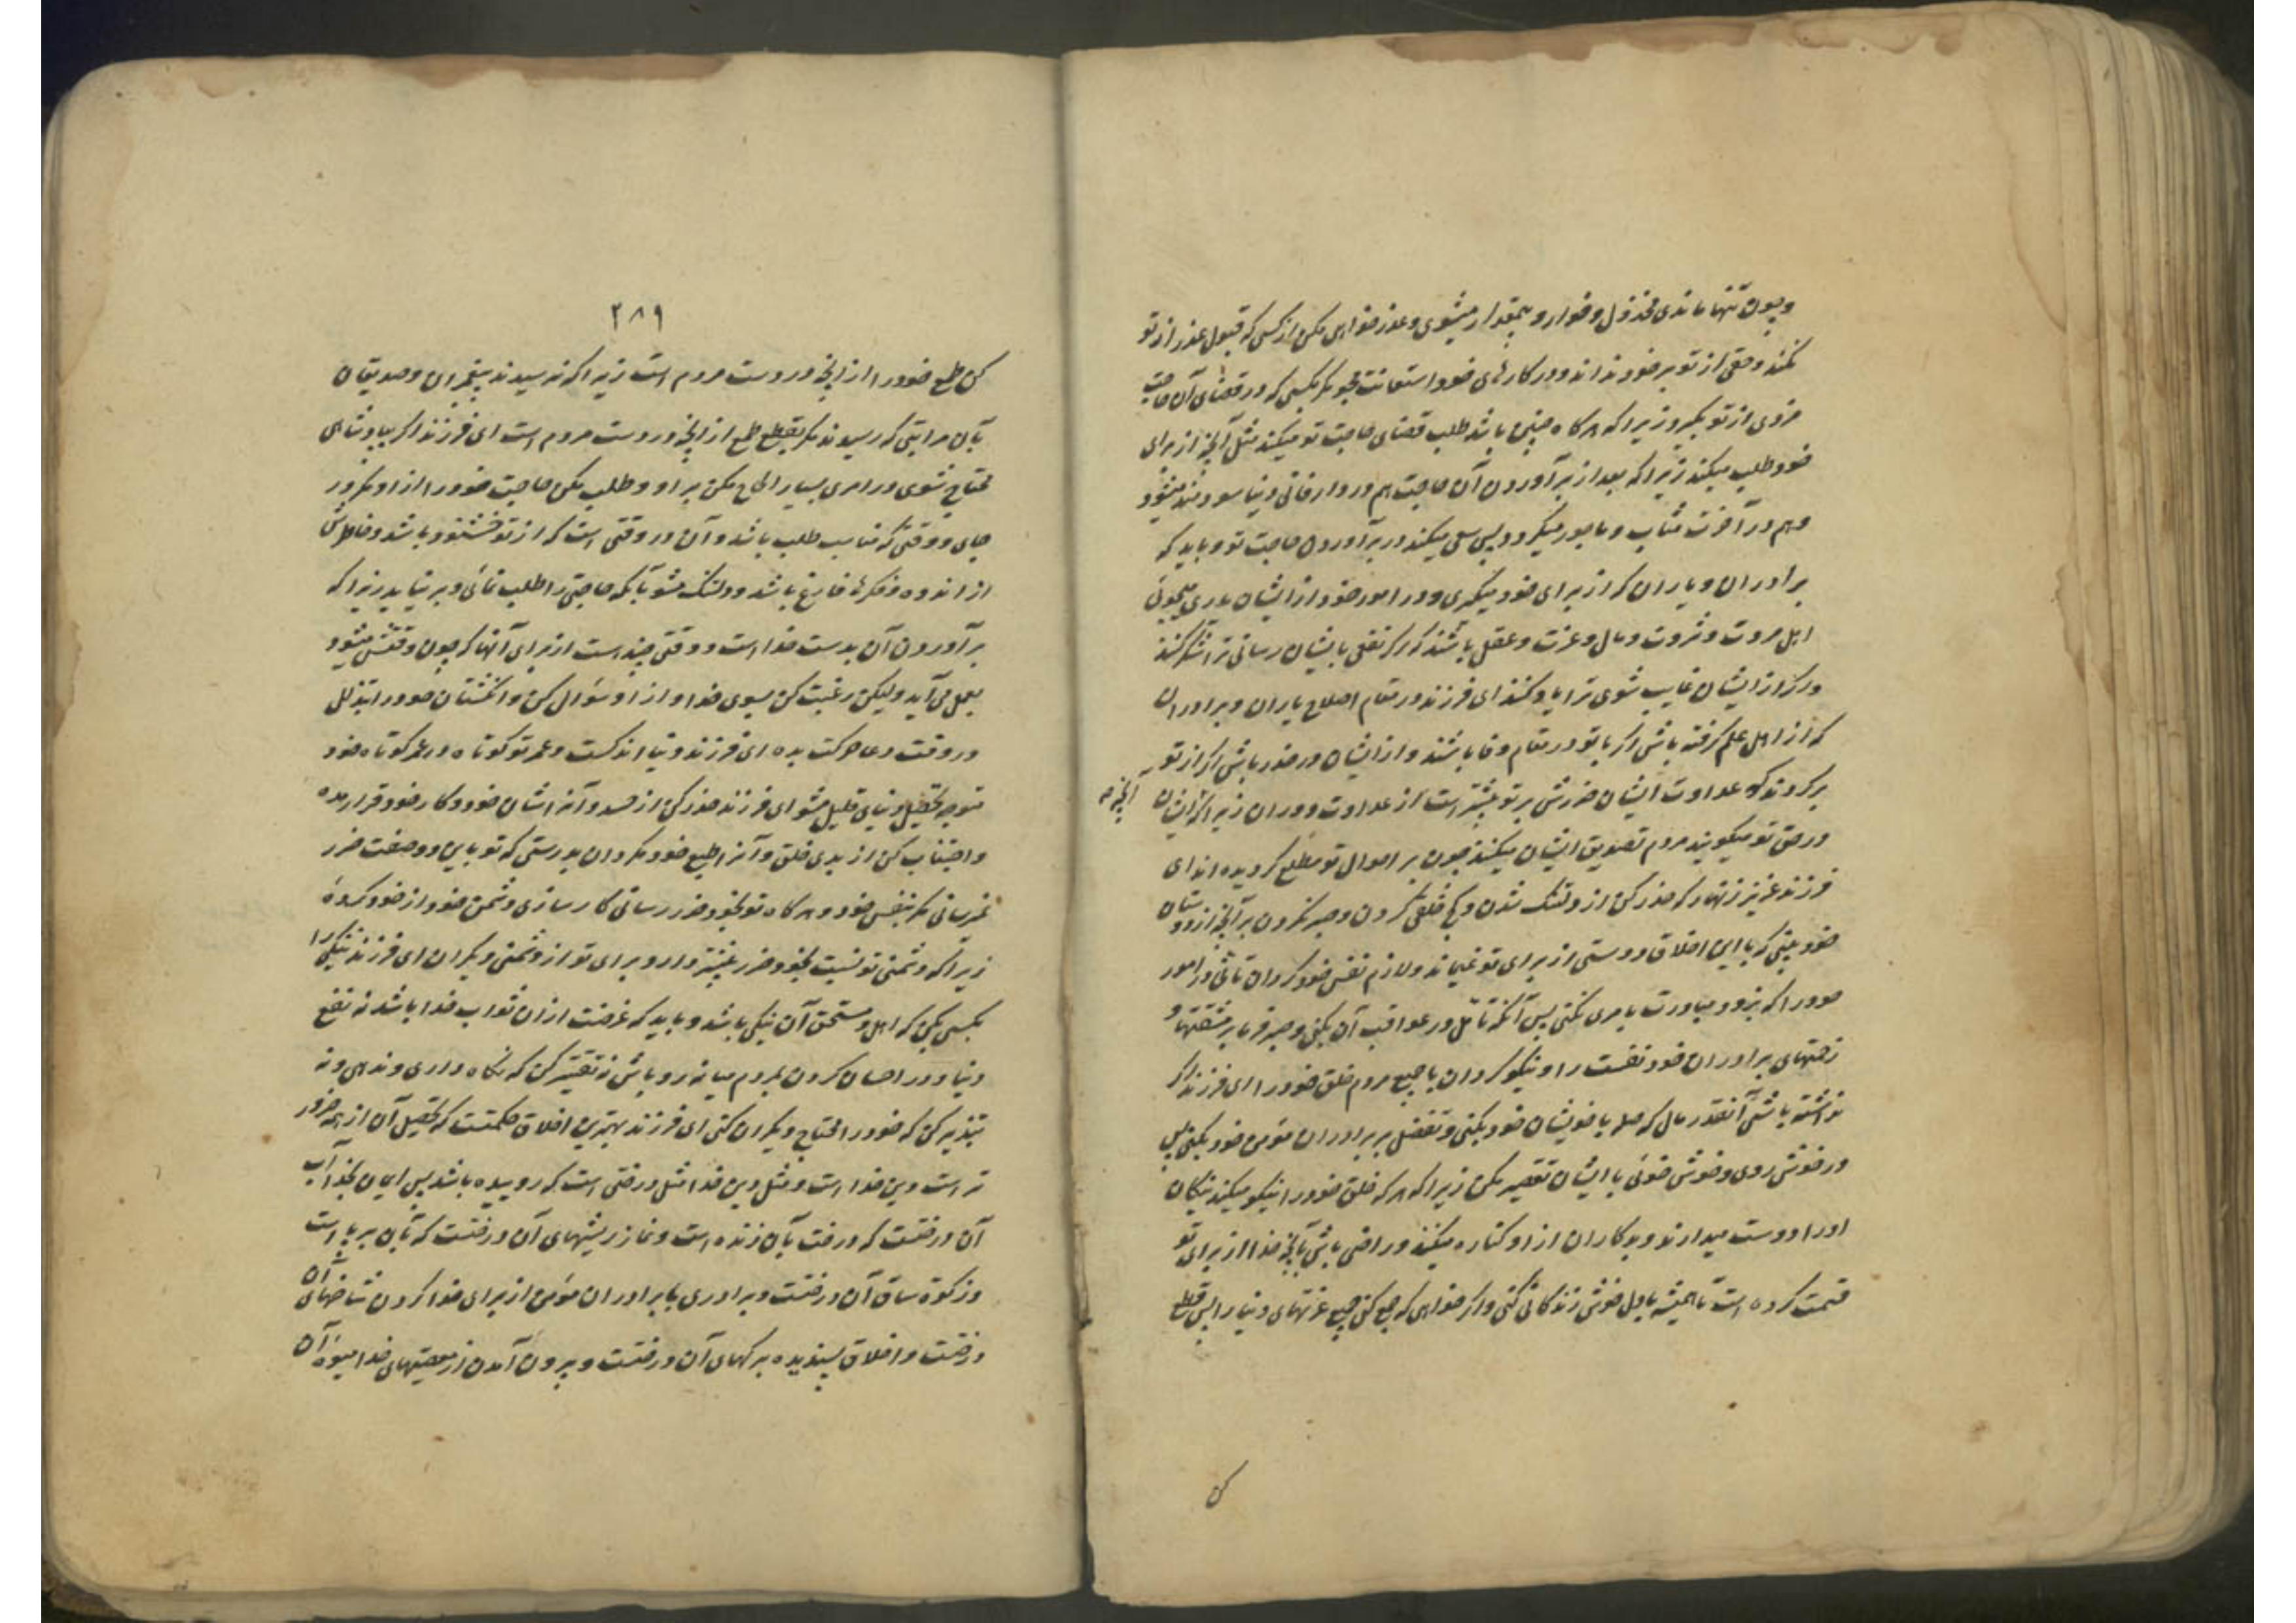 و چون تنها ماندی مخذول و خوار و بیمقدار میشوی و عذر خواهی مکن از کسی که قبول عذر از تو
نکند و حقی از تو بر خود نداند و در کارهای خود استعانت مجو مگر بکسی که در قضای آن حاجت
مزدی از تو بگیرد زیرا که هر گاه چنین باشد طلب قضای حاجت تو میکند مثل آنچه از برای
خود طلب میکند زیرا که بعد از برآوردن آن حاجت هم در دار فانی دنیا سودمند میشود
و هم در آخرت مثاب و ماجور میگردد پس سعی میکند در برآوردن حاجت تو و باید که
برادران و یاران که از برای خود میگیری و در امور خود از ایشان یاری میجوئی
اهل مروت و ثروت و مال و عزت و عقل باشند که اگر نفعی بایشان رسانی ترا شکر کنند
و اگر از ایشان غایب شوی ترا یاد کنند ای فرزند در مقام اصلاح یاران و برادران
که از اهل علم گرفته باشی اگر با تو در مقام وفا باشند و از ایشان در حذر باش اگر از تو
برگردند که عداوت ایشان ضررش بر تو بیشتر است از عداوت دوران زیرا که ایشان آنچه
در حق تو میگویند مردم تصدیق ایشان میکنند چون بر احوال تو مطلع گردیده اند ای
فرزند عزیز زنهار که حذر کن از دلتنگ شدن و کج خلقی کردن و صبر نکردن بر آنچه از دوستان
خود بینی که با این اخلاق دوستی از برای تو نمیماند و لازم نفس خود گردان تانی در امور
خود را که بزود مبادرت بامری نکنی پس آنکه تأمل در عواقب آن بکنی و صبر فرما بر مشقتها و
زحمتهای برادران خود نفست را و نیکو گردان با جمیع مردم خلق خود را ای فرزند اگر
نداشته باشی آنقدر مال که صله با خویشان خود بکنی و تفضل بر برادران مؤمن خود بکنی پس
در خوش روی و خوش خوئی با ایشان تقصیر مکن زیرا که هر که خلق خود را نیکو میکند نیکان
او را دوست میدارند و بدکاران از او کناره میکنند و راضی باش بآنچه خدا از برای تو
قسمت کرده است تا همیشه با دل خوش زندگانی کنی و اگر خواهی که جمع کنی جمیع عزتهای دنیا را پس قطع
کن
۲۸۹
کن طمع خود را از آنچه در دست مردم است زیرا که نرسیدند پیغمبران و صدیقان
بآن مراتبی که رسیدند مگر بقطع طمع از آنچه در دست مردم است ای فرزند اگر بپادشاهی
محتاج شوی در امری بسیار الحاح مکن بر او و طلب مکن حاجت خود را از او مگر در
جای و وقتی که مناسب طلب باشد و آن در وقتی است که از تو خشنود باشد و خاطرش
از اندوه و فکرها فارغ باشد و دلتنگ مشو بآنکه حاجتی را طلب نمائی و برنیاید زیرا که
برآوردن آن بدست خدا است و وقتی چند است از برای آنها که چون وقتش میشود
بعمل می آید ولیکن رغبت کن بسوی خدا و از او سؤال کن و انگشتان خود را بتذلل
در وقت دعا حرکت بده ای فرزند دنیا اندکست و عمر تو کوتاه در عمر کوتاه خود
متوجه تحصیل دنیای قلیل مشو ای فرزند حذر کن از حسد و آنرا شان خود و کار خود قرار مده
و اجتناب کن از بدی خلق و آنرا طبع خود مگردان بدرستی که تو باین دو صفت ضرر
نمیرسانی مگر بنفس خود و هر گاه تو بخود ضرر رسانی کار سازی دشمن خود از خود کردهٔ
زیرا که دشمنی تو نسبت بخود ضرر بیشتر دارد برای تو از دشمنی دیگران ای فرزند نیکی را
بکسی بکن که اهل و مستحق آن نیکی باشد و باید که غرضت ازان ثواب خدا باشد نه نفع
دنیا و در احسان کردن بمردم میانه رو باش نه تقتیر کن که نگاه داری و ندهی و نه
تبذیر کن که خود را محتاج دیگران کنی ای فرزند بهترین اخلاق حکمتست که تحصیل آن از همه ضرور
تر است دین خدا است و مثل دین خدا مثل درختی است که روییده باشد پس ایمان بخدا آب
آن درختست که درخت بآن زنده است و نماز ریشهای آن درختست که بآن بر پا است
و زکوة ساق آن درختست و برادری با برادران مؤمن از برای خدا کردن شاخهای آن
درختست و اخلاق پسندیده برگهای آن درختست و بیرون آمدن از معصیتهای خدا میوهٔ آن